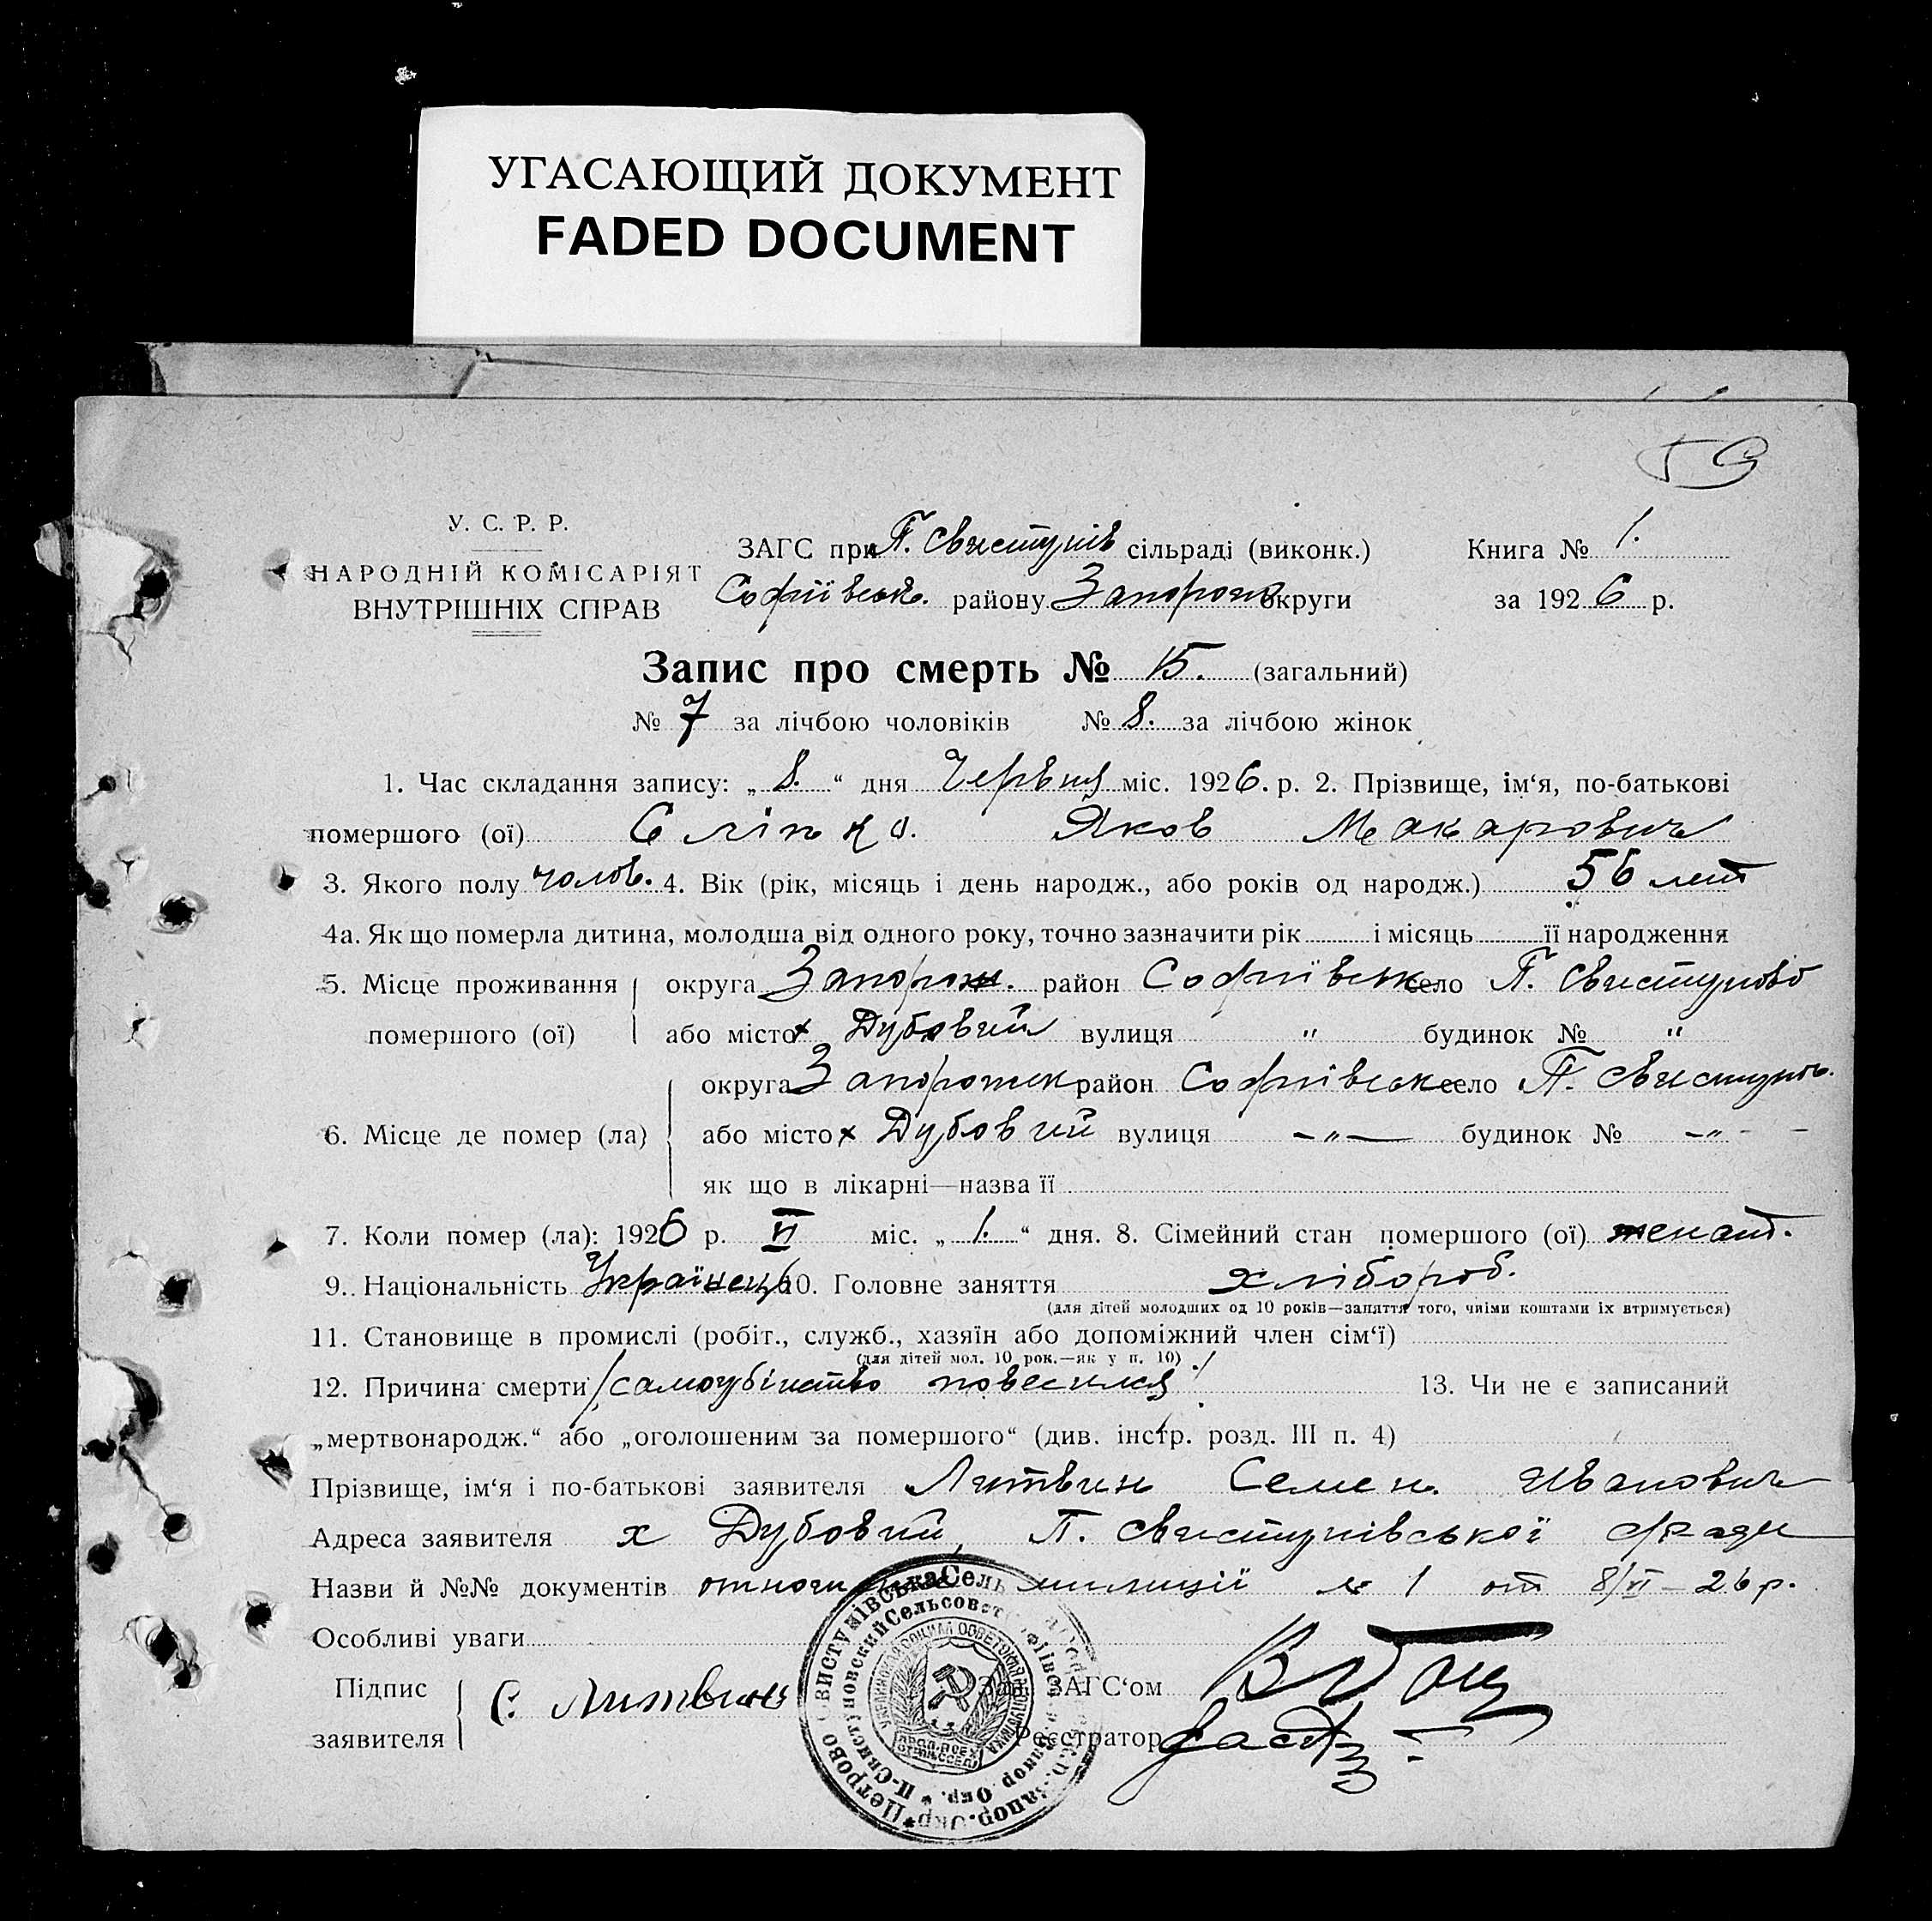 УГАСАЮЩИЙ ДОКУМЕНТ
FADED DOCUMENT
59
У. С. Р. Р.
НАРОДНІЙ КОМІСАРІЯТ
ВНУТРІШНІХ СПРАВ
ЗАГС при П. Свистунів сільраді (виконк.)
Софіївськ. району Запорож округи
Книга № 1.
за 1926 р.
Запис про смерть № 15. (загальний)
№ 7 за лічбою чоловіків № 8. за лічбою жінок
1. Час складання запису: „ 8. “ дня Червня міс. 1926. р. 2. Прізвище, ім‘я, по-батькові
помершого (ої) Сліпко. Яков Макарович
3. Якого полу чолов. 4. Вік (рік, місяць і день народж., або років од народж.) 56 лет
4а. Як що померла дитина, молодша від одного року, точно зазначити рік і місяць її народження
5. Місце проживання округа Запорож. район Софіївськ село П. Свистуново
помершого (ої) або місто х Дубовий вулиця " будинок № "
округа Запорожск район Софіївськ село П. Свистунов.
6. Місце де помер (ла) або місто х Дубовий вулиця — " — будинок № — " —
як що в лікарні—назва її
7. Коли помер (ла): 1926 р. VI міс. „ 1. “ дня. 8. Сімейний стан помершого (ої) женат.
9. Національність Українець 10. Головне заняття хлібороб.
(для дітей молодших од 10 років—заняття того, чиїми коштами їх втримується)
11. Становище в промислі (робіт., служб., хазяїн або допоміжний член сім‘ї)
(для дітей мол. 10 рок.—як у п. 10)
12. Причина смерти /самоубінство повесился/ 13. Чи не є записаний
„мертвонародж.“ або „оголошеним за помершого“ (див. інстр. розд. III п. 4)
Прізвище, ім‘я і по-батькові заявителя Литвин Семен Иванович
Адреса заявителя х Дубовий, П. Свистунівської с/ради
Назви й №№ документів міліції № 1 от 8/VI – 26 р.
Особливі уваги
Підпис
заявителя С. Литвин
Зав. ЗАГС‘ом
Реєстратор
Петрово Свистунівська Сель
П-Свистуновский Сельсовет
Запор. Окр.